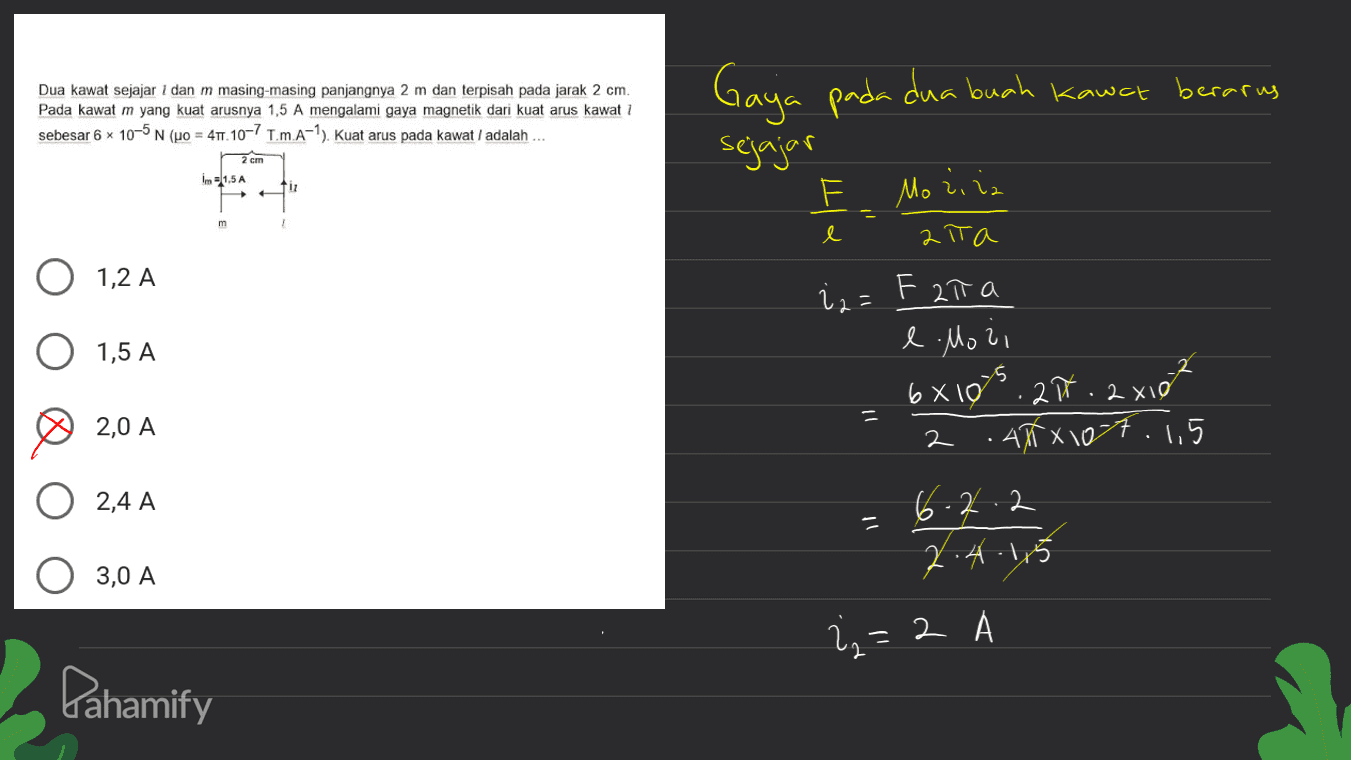 Dua kawat sejajar l dan m masing-masing panjangnya 2 m dan terpisah pada jarak 2 cm.
Pada kawat m yang kuat arusnya 1,5 A mengalami gaya magnetik dari kuat arus kawat l
sebesar 6 × 10⁻⁵ N (μo = 4π.10⁻⁷ T.m.A⁻¹). Kuat arus pada kawat l adalah ...
2 cm
im = 1,5 A
il
m
l
1,2 A
1,5 A
2,0 A
2,4 A
3,0 A
Gaya pada dua buah kawat berarus
sejajar
F/l = μ₀ i₁ i₂ / 2πa
i₂ = F 2π a / l . μ₀ i₁
= 6 × 10⁻⁵ . 2π . 2 × 10⁻² / 2 . 4π × 10⁻⁷ . 1,5
= 6 . 2 . 2 / 2 . 4 . 1,5
i₂ = 2 A
Pahamify